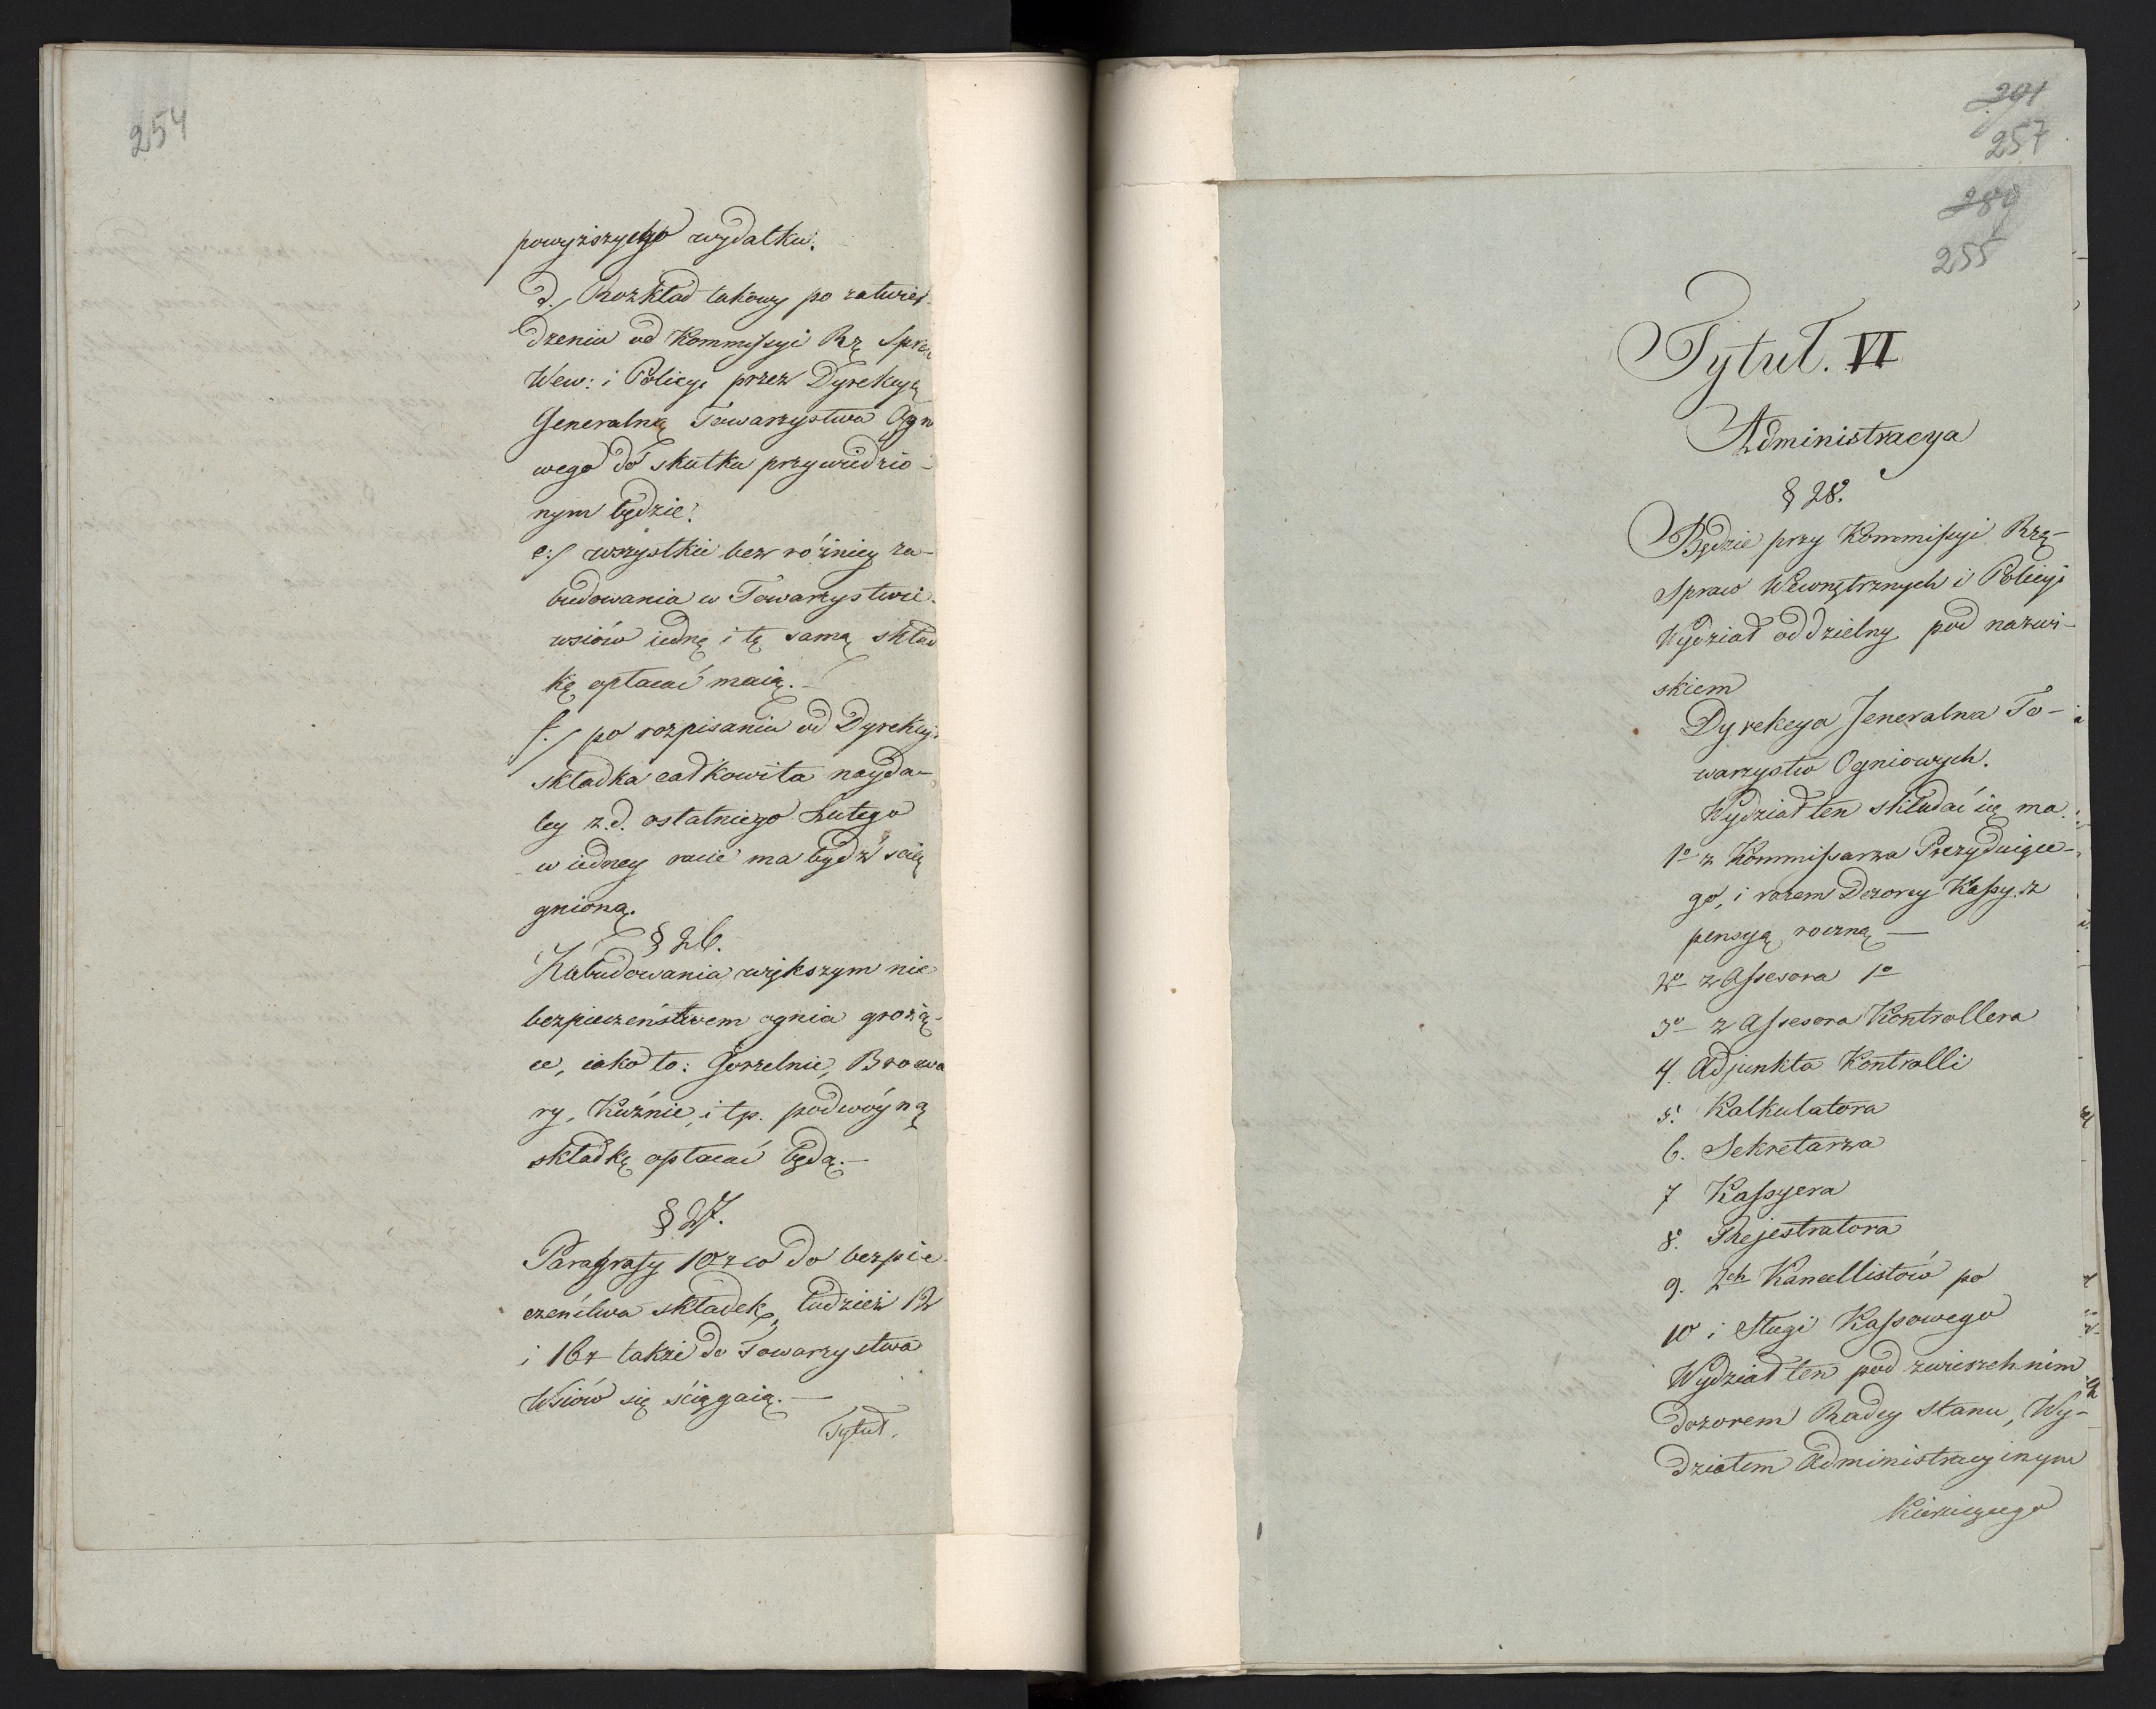 254
powyższego wydatku.
d./ Rozkład takowy po zatwier-
dzeniu od Kommissyi Rzą Spra
Wew: i Policyi przez Dyrekcyą
Generalną Towarzystwa Ogn
wego do skutku przywiedzio-
nym będzie.
e:/ wszystkie bez różnicy za-
budowania w Towarzystwie
wsiów iedną i tę samą skład
kę opłacać maią.-
f./ po rozpisaniu od Dyrekcyi
składka całkowita nayda-
ley z.d. ostatniego Lutego
w iedney racie ma bydź scią
gnioną.
§ 26.
Zabudowania większym nie
bezpieczeństwem ognia grożą-
ce, iako to: Gorzelnie, Browa
ry, Kuźnie, i tp. podwóyną
składkę opłacać będą.-
§ 27.
Paragrafy 10 co do bezpie
czeństwa składek, tudzież 12
i 16 także do Towarzystwa
Wsiów się ściągaią.-
Tytuł.
291
257
289
255
Tytuł. VI
Administracya
§ 28.
Będzie przy Kommissyi Rzą-
Spraw Wewnętrznych i Policyi
Wydział oddzielny pod nazwi-
skiem
Dyrekcya Jeneralna To-
warzystw Ogniowych.
Wydział ten składać się ma.
1o z Kommissarza Prezyduiące-
go, i razem Dozorcy Kassy z
pensyą roczną -
2o z Assesora 1o
3o z Assesora Kontrollera
4. Adjunkta Kontrolli
5. Kalkulatora
6. Sekretarza
7 Kassyera
8. Rejestratora
9. 2ch Kancellistów po
10 i Sługi Kassowego
Wydział ten pod zwierzchnim
dozorem Radcy Stanu, Wy-
działem Administracyinym
Kieruiącego